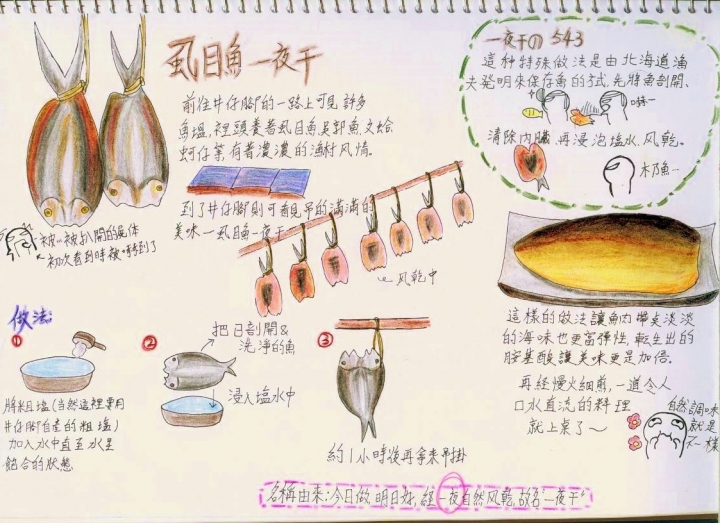 虱目魚一夜干
前往井仔腳的一路上可見許多
魚塭,裡頭養著虱目魚吳郭魚文蛤
蚵仔等,有著濃濃的漁村風情。
到了井仔腳則可看見吊的滿滿的
美味一虱目魚一夜干
一夜干の 543
這種特殊做法是由北海道漁
夫發明來保存魚的方式,先將魚剖開、
清除內臟、再浸泡塩水、风乾。
木乃魚一
被一被扒開的屍体
初次看到時被嚇到了
风乾中
這樣的做法讓魚肉帶点淡淡
的海味也更富彈性,乾生出的
胺基酸讓美味更是加倍。
再經慢火細煎,一道令人
口水直流的料理
就上桌了~
自然調味
就是
不一樣
做法:
①
將粗塩(当然這裡要用
井仔腳自產的粗塩)
加入水中直至水呈
飽合的狀態
②
把已剖開&
洗淨的魚
浸入塩水中
③
約1小時後再拿來吊掛
名稱由來:今日做,明日好,經一夜自然风乾,故名"一夜干"